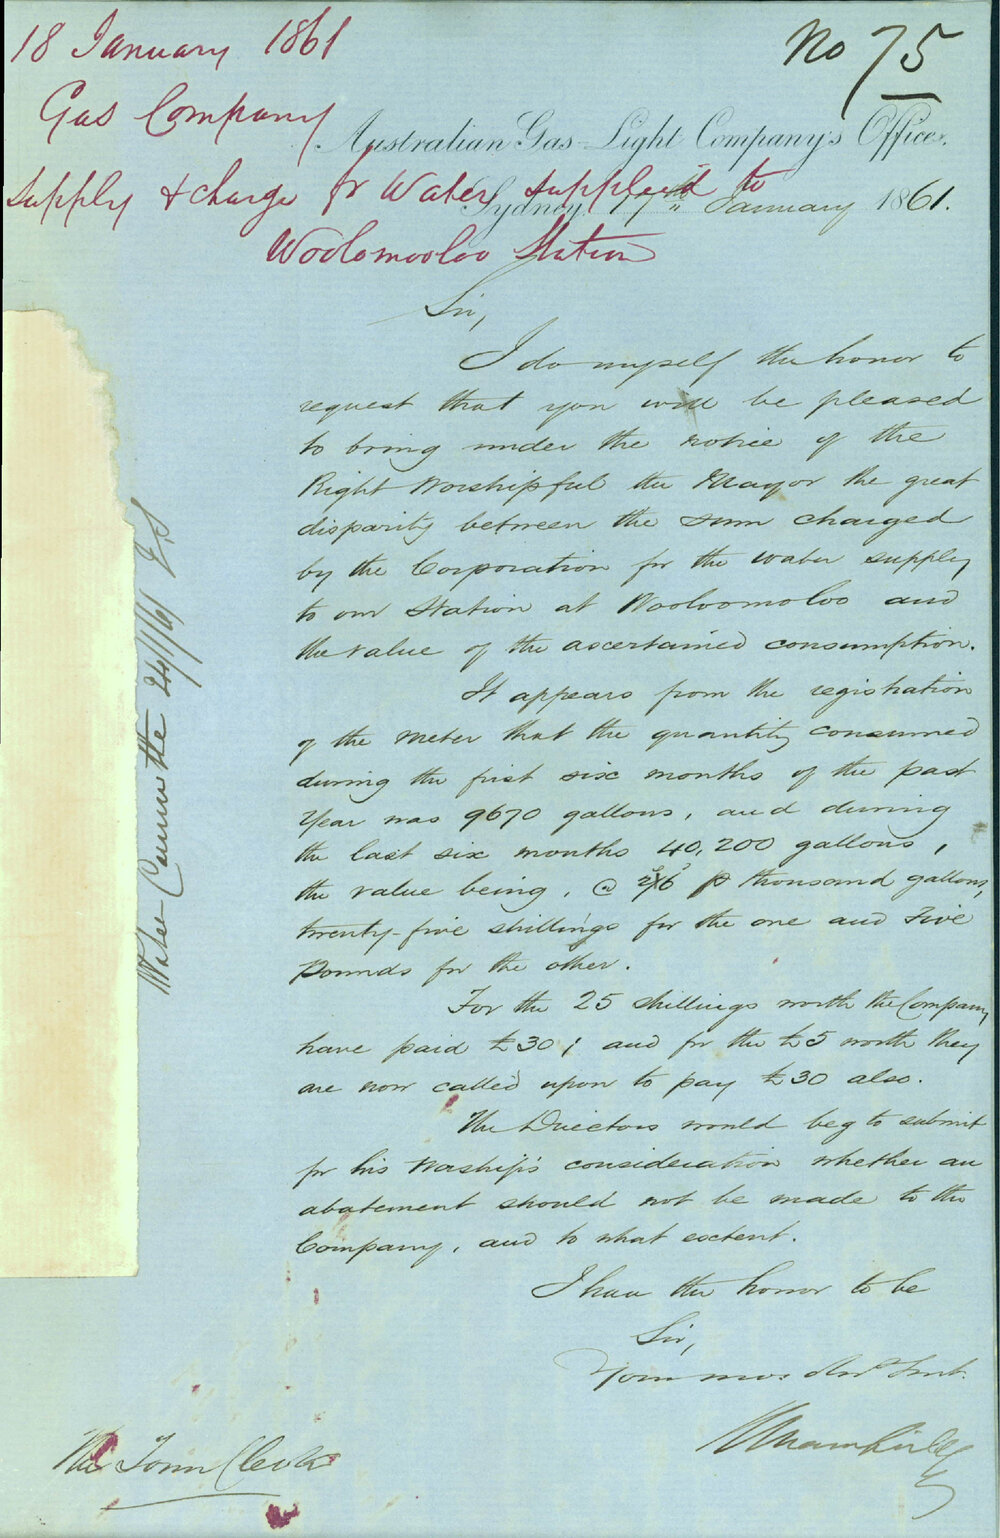 18 January 1861
No 75
Gas Company
Australian Gas-Light Company's Office,
supply & charge for Water supplied to
Sydney 17th January 1861.
Woolomooloo Station
Sir,
I do myself the honor to
request that you will be pleased
to bring under the notice of the
Right Worshipful the Mayor the great
disparity between the sum charged
by the Corporation for the water supply
to our Station at Wooloomoloo and
the value of the ascertained consumption.
It appears from the registration
of the meter that the quantity consumed
during the first six months of the past
Year was 9670 gallons, and during
the last six months 40,200 gallons,
the value being, @ 2/6 p thousand gallons,
twenty-five shillings for the one and Five
Pounds for the other.
For the 25 shillings worth the Company
have paid £30; and for the £5 worth they
are now called upon to pay £30 also.
The Directors would beg to submit
for his Worship's consideration whether an
abatement should not be made to the
Company, and to what extent.
I have the honor to be
Sir,
Your mos. obd Servt.
The Town Clerk
Water Committee 24/1/61